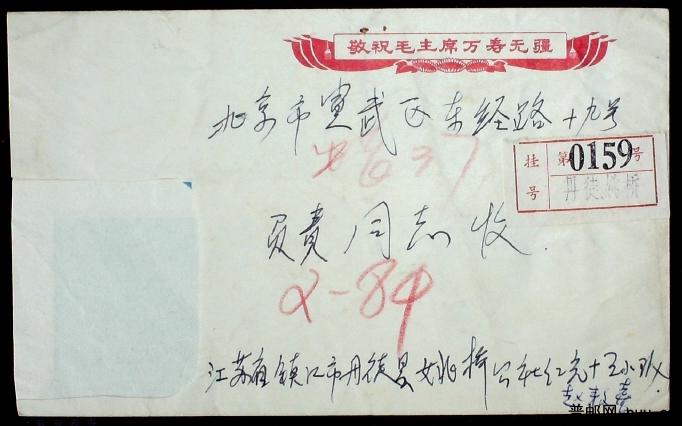 敬祝毛主席万寿无疆
北京市宣武区东经路十九号
挂号 第0159号
丹徒姚桥
负责同志收
2-84
江苏省镇江市丹徒县姚桥公社红光十五小队
普邮网